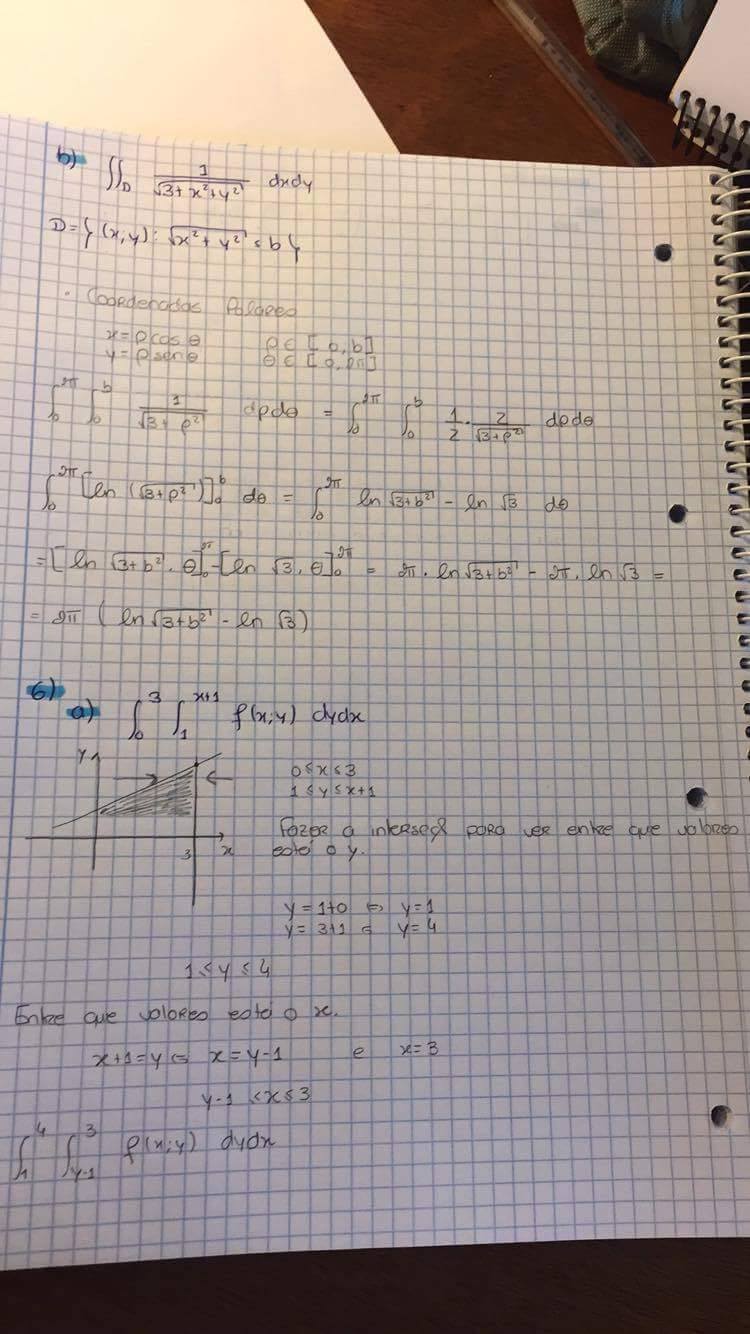 b) ∬_D 1/√(3+x²+y²) dxdy
D={(x,y): √(x²+y²) ≤ b}
· Coordenadas Polares
x=ρcos θ ρ∈ [0,b]
y=ρsenθ θ∈ [0,2π]
∫_0^{2π} ∫_0^b 1/√(3+ρ²) dρdθ = ∫_0^{2π} ∫_0^b 1/2 · 2/√(3+ρ²) dρdθ
∫_0^{2π} [ln (√(3+ρ²))]_0^b dθ = ∫_0^{2π} ln √(3+b²) - ln √3 dθ
=[ln √(3+b²) . θ]_0^{2π} - [ln √3 . θ]_0^{2π} = 2π . ln √(3+b²) - 2π . ln √3 =
= 2π (ln √(3+b²) - ln √3)
6)
a) ∫_0^3 ∫_1^{x+1} f(x;y) dydx
y
0≤x≤3
1≤y≤x+1
3 x
Fazer a interseç para ver entre que valores
está o y.
y=1+0 ⇔ y=1
y= 3+1 ⇔ y=4
1≤y≤4
Entre que valores está o x.
x+1=y ⇔ x=y-1 e x=3
y-1 <x≤3
∫_1^4 ∫_{y-1}^3 f(x;y) dydx